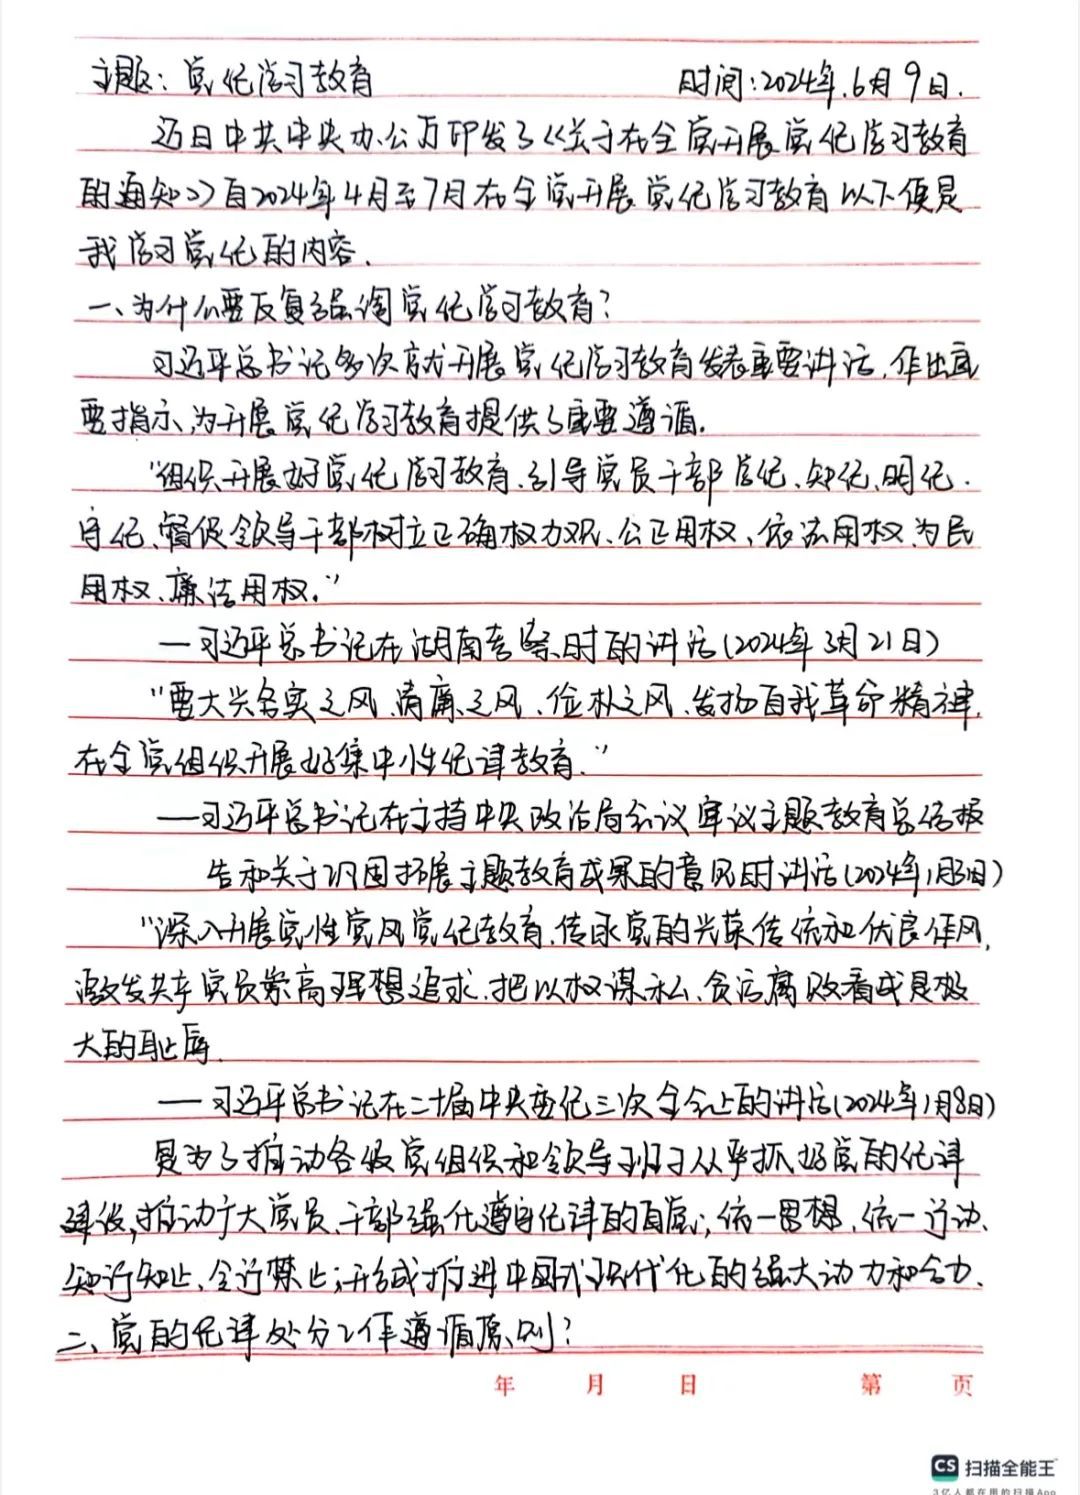 主题：党纪学习教育 时间：2024年.6月9日.
近日中共中央办公厅印发了《关于在全党开展党纪学习教育
的通知》自2024年4月至7月在全党开展党纪学习教育以下便是
我学习党纪的内容.
一、为什么要反复强调党纪学习教育?
习近平总书记多次就开展党纪学习教育发表重要讲话,作出重
要指示,为开展党纪学习教育提供了重要遵循.
“组织开展好党纪学习教育、引导党员干部学纪、知纪、明纪、
守纪、督促领导干部树立正确权力观、公正用权、依法用权、为民
用权、廉洁用权.”
—习近平总书记在湖南考察时的讲话(2024年3月21日)
“要大兴务实之风、清廉之风、俭朴之风、发扬自我革命精神,
在全党组织开展好集中性纪律教育.”
—习近平总书记在主持中央政治局会议审议主题教育总结报
告和关于巩固拓展主题教育成果的意见时讲话(2024年1月31日)
“深入开展党性党风党纪教育,传承党的光荣传统和优良作风,
激发共产党员崇高理想追求,把以权谋私、贪污腐败看成是极
大的耻辱.
—习近平总书记在二十届中央委纪三次全会上的讲话(2024年1月8日)
是为了推动各级党组织和领导班子从严抓好党的纪律
建设,推动广大党员、干部强化遵守纪律的自觉;统一思想,统一行动、
知行知止、令行禁止;形成推进中国式现代化的强大动力和合力.
二、党的纪律处分工作遵循原则?
年 月 日 第 页
CS 扫描全能王
3亿人都在用的扫描App